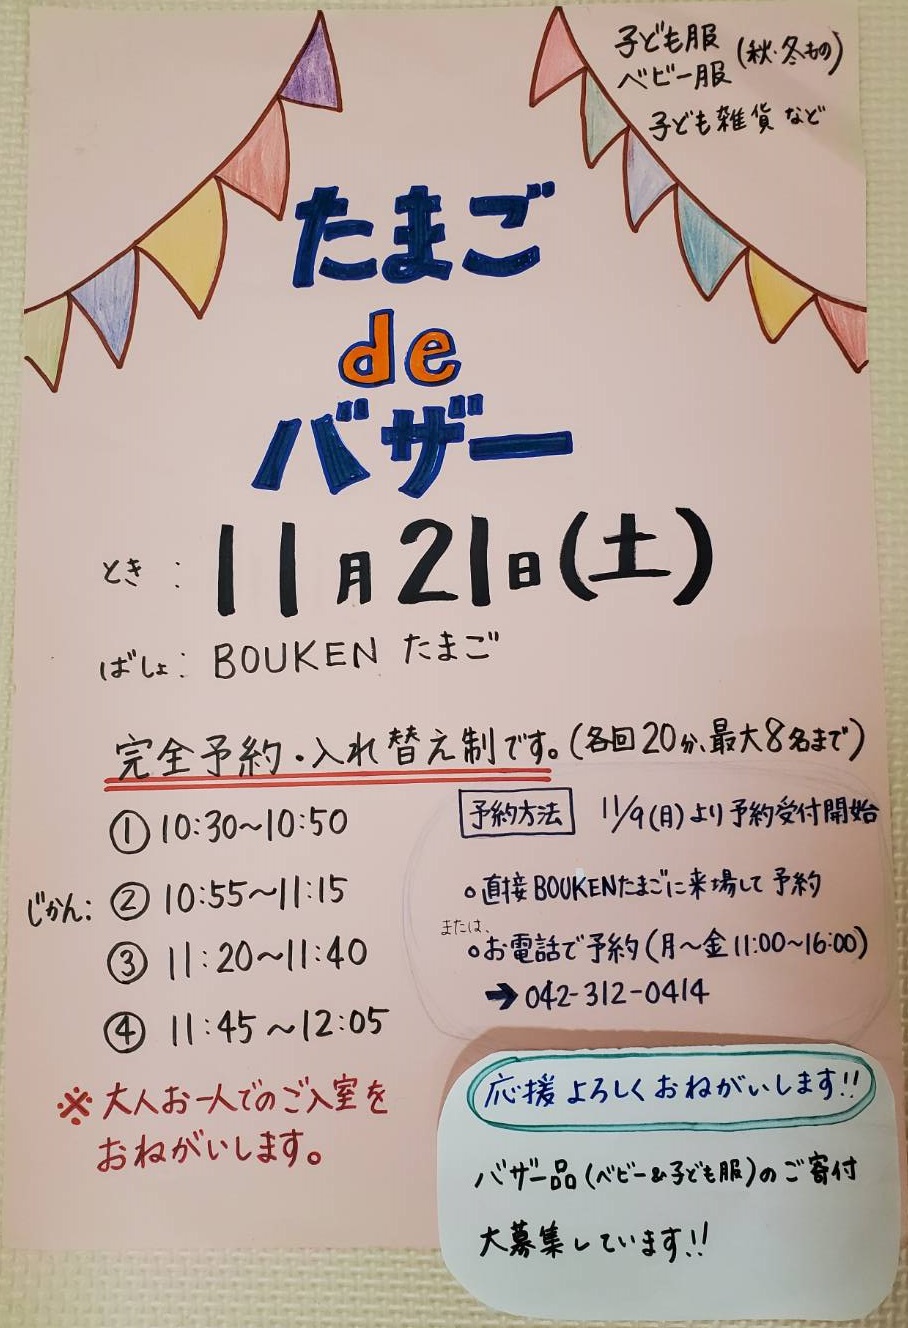 子ども服
ベビー服 (秋・冬もの)
子ども雑貨 など
たまご
de
バザー
とき : 11月21日(土)
ばしょ: BOUKEN たまご
完全予約・入れ替え制です。(各回20分、最大8名まで)
じかん:
① 10:30〜10:50
② 10:55〜11:15
③ 11:20〜11:40
④ 11:45〜12:05
予約方法 11/9(月)より予約受付開始
○直接BOUKENたまごに来場して予約
または、
○お電話で予約(月〜金11:00〜16:00)
➔042-312-0414
※大人お一人でのご入室を
おねがいします。
応援よろしくおねがいします!!
バザー品(ベビー&子ども服)のご寄付
大募集しています!!